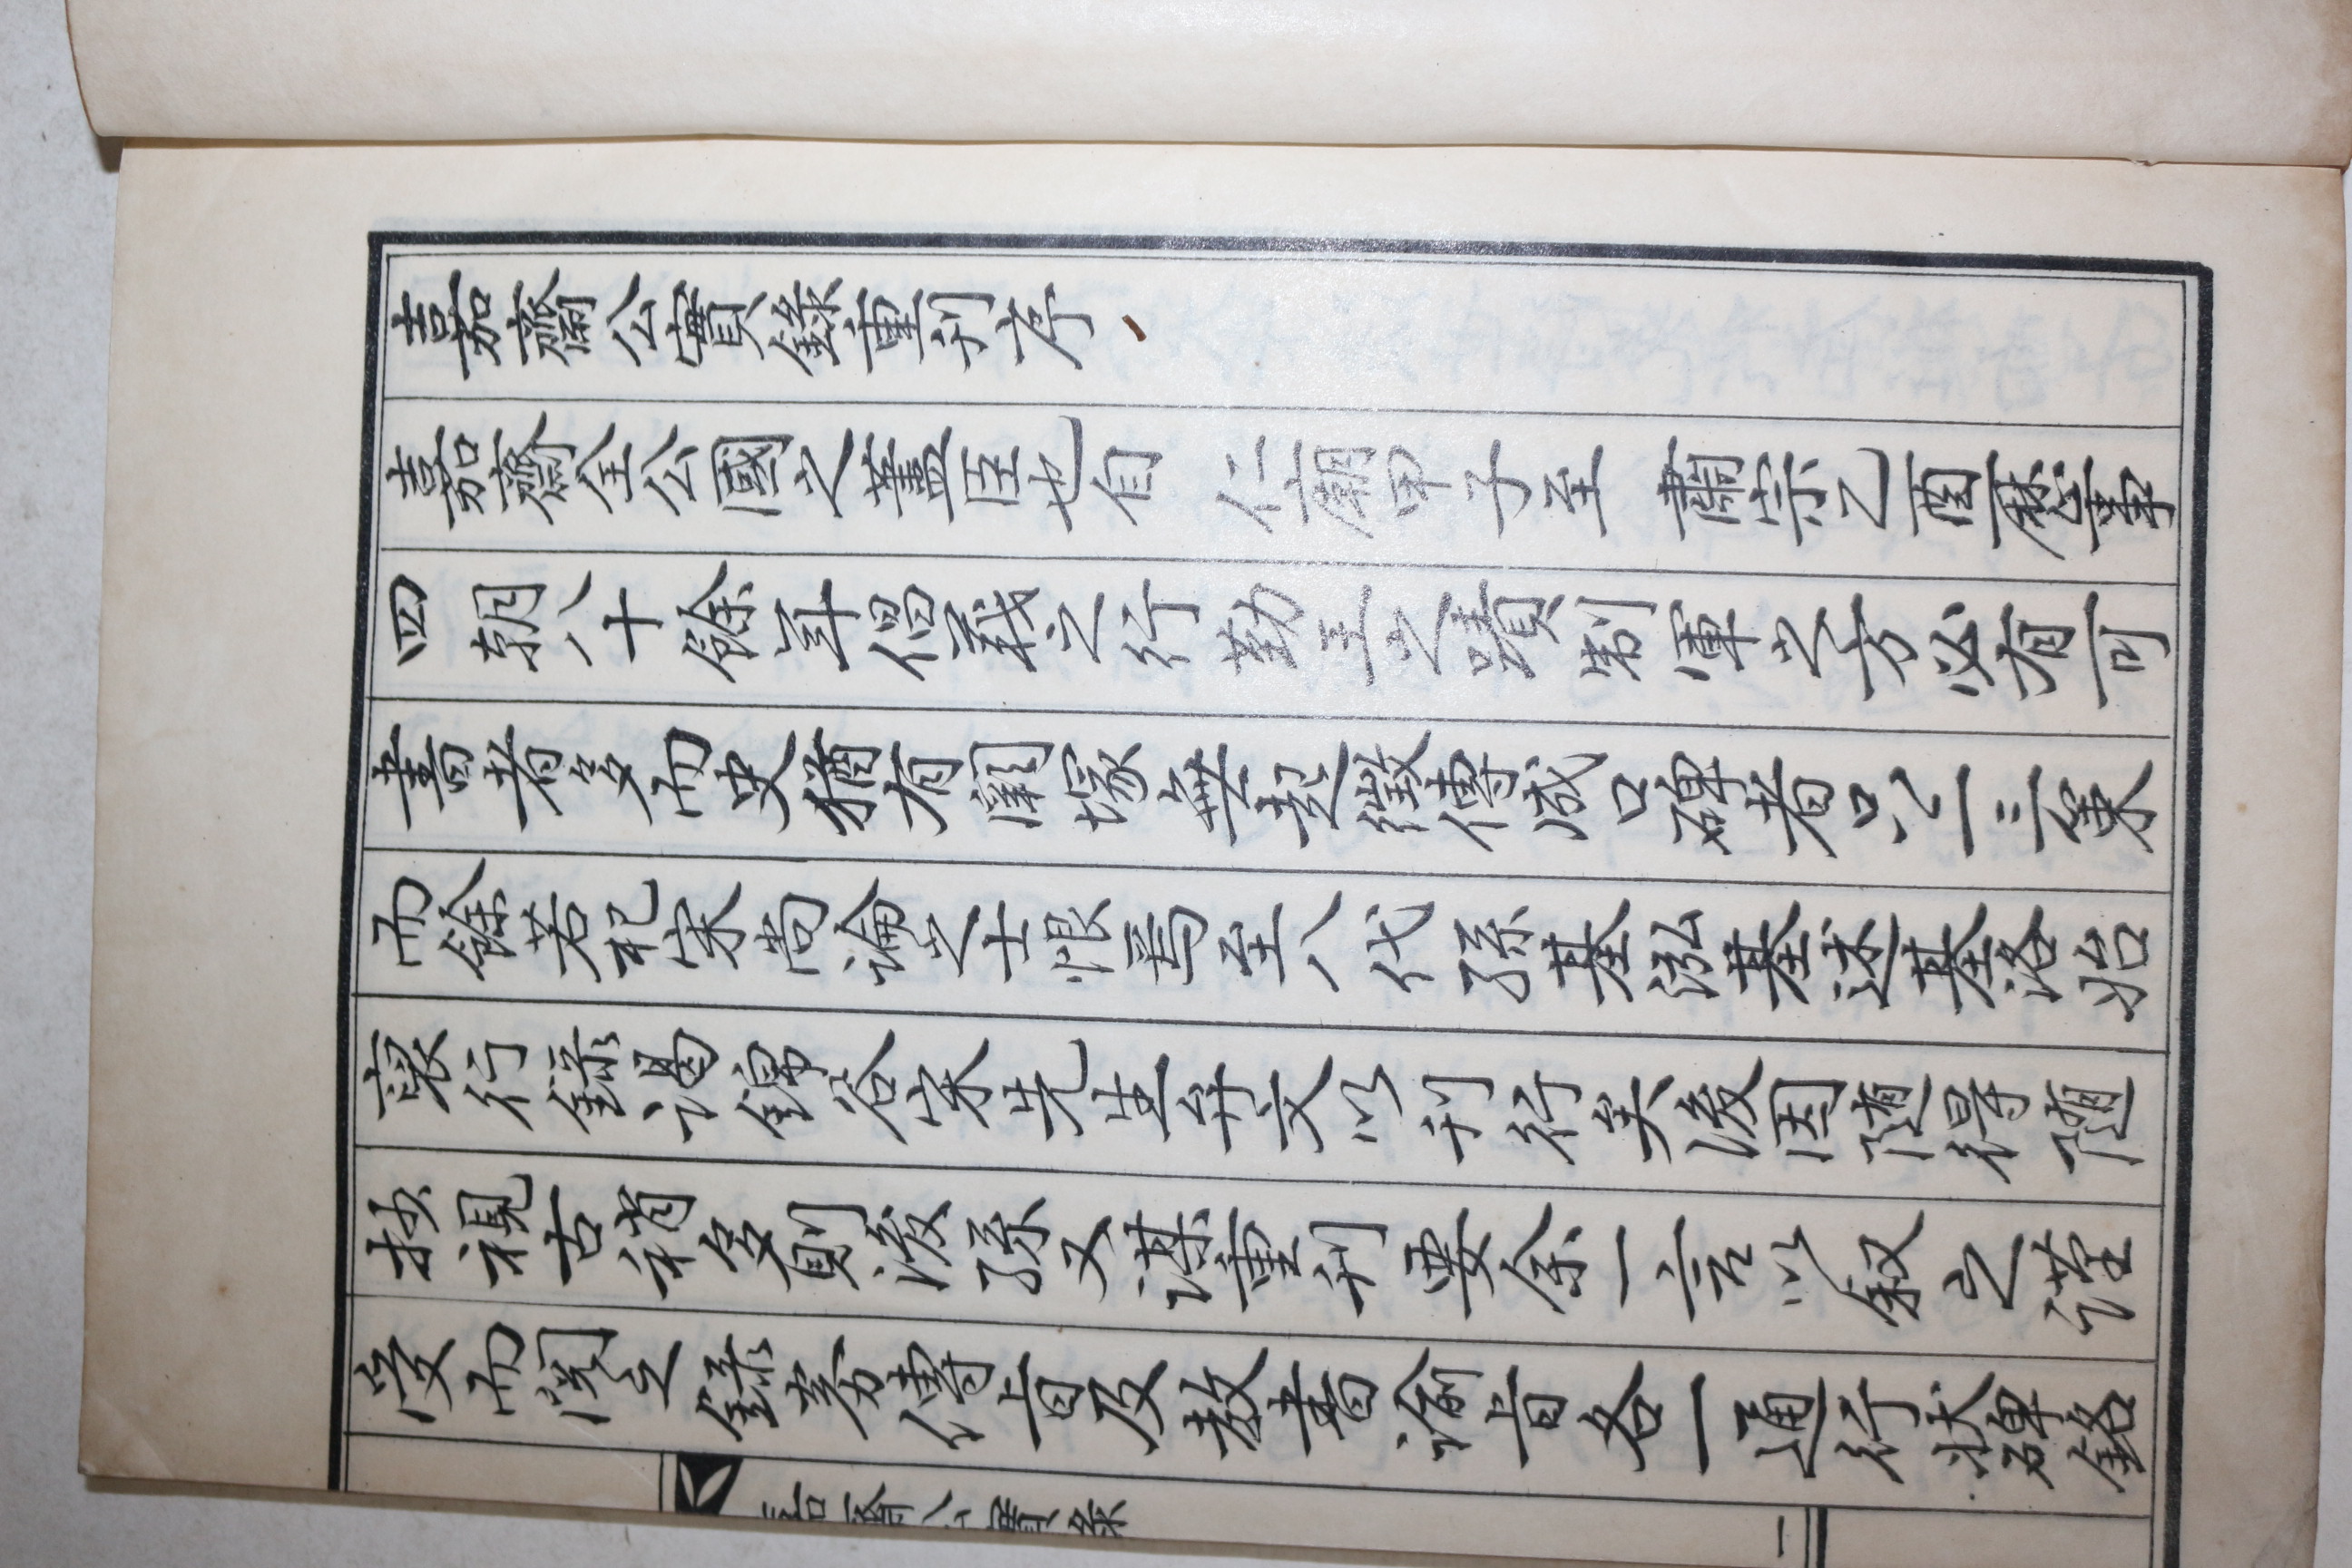 嘉齋公實錄重刊序
嘉齋全公國之藎臣也自 仁廟甲子至 肅宗乙酉歷事
四朝八十餘年倡義之行勤王之蹟制軍之方必有可
書者多而史猶有闕塚無起徵傳成口碑者只二三策
而餘若杞宋尚論之士恨焉至八代孫基泓基述基洛始
裒行錄謁錦谷宋先生弁文以刊行矣後因随得随
抄視古稍多則後孫又謀重刊要余一言以叙之謹
受而閱之錄券傳旨及教書諭旨各一通行狀碑銘
嘉齋公實錄
一